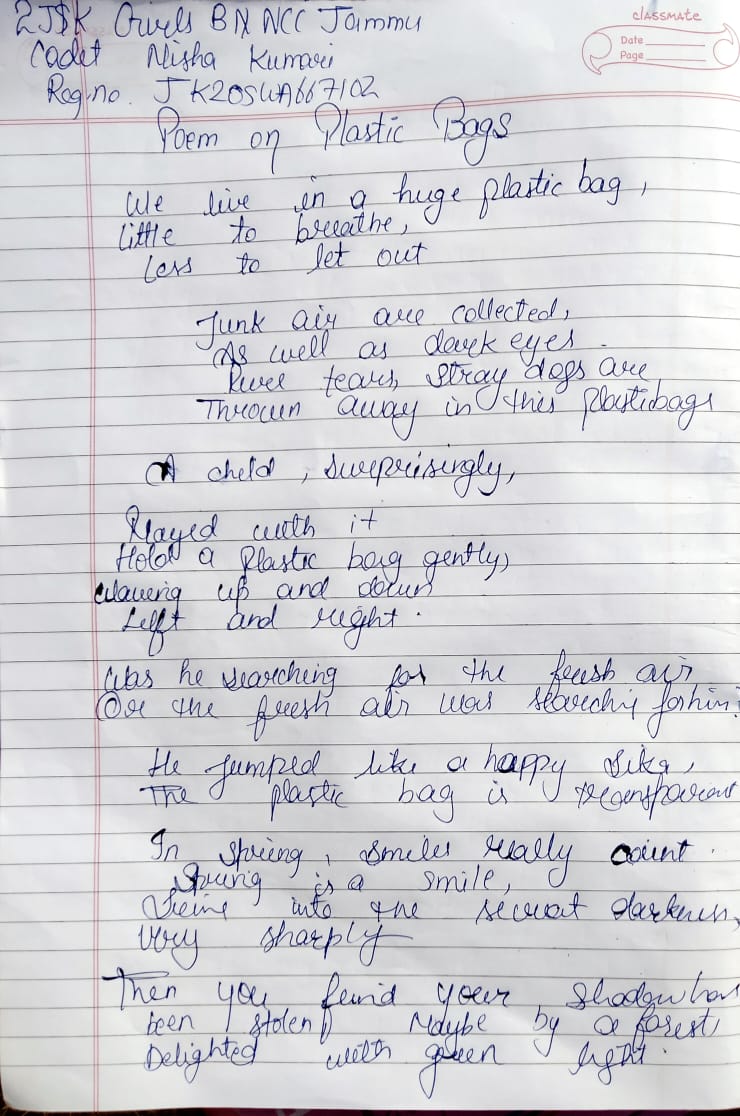 2J&K Girls BN NCC Jammu
classmate
Date
Page
Cadet Nisha Kumari
Reg.no. JK20SWA667102
Poem on Plastic Bags
We live in a huge plastic bag,
Little to breathe,
Less to let out
Junk air are collected,
As well as dark eyes.
Pure tears, stray dogs are
Thrown away in this plastibags
A child, surprisingly,
Played with it
Hold a Plastic bag gently,
Waving up and down
Lefft and right.
Was he searching for the fresh air
Or the fresh air was searchig forhim?
He jumped like a happy Sika,
The plastic bag is transparent
In spring, smiles really count.
Spring is a smile,
into the secret darkness,
Very sharply
Then you find your shadow has
been stolen Maybe by a forest
Delighted with green light.